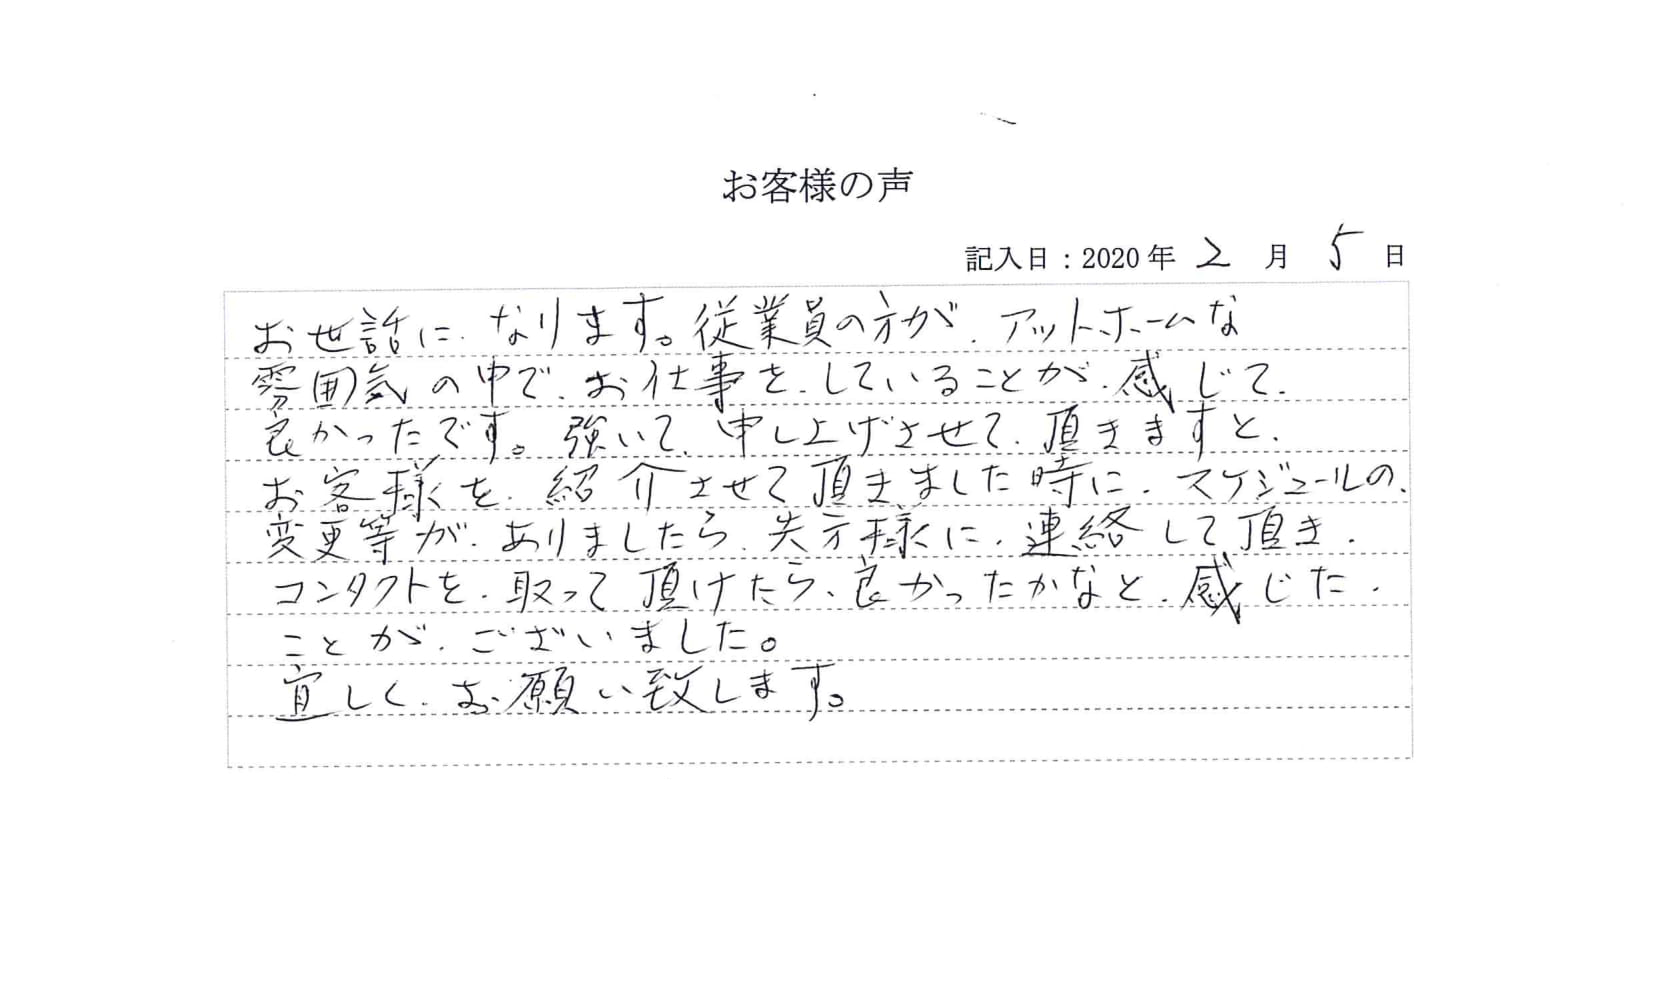 お客様の声
記入日：2020年 2 月 5 日
お世話に.なります。従業員の方が.アットホームな
雰囲気の中で.お仕事を.していることが.感じて.
良かったです。強いて.申し上げさせて.頂きますと.
お客様を.紹介させて頂きました時に.スケジュールの.
変更等が.ありましたら.先方様に.連絡して頂き.
コンタクトを.取って頂けたら、良かったかなと.感じた.
ことが.ございました。
宜しく.お願い致します。